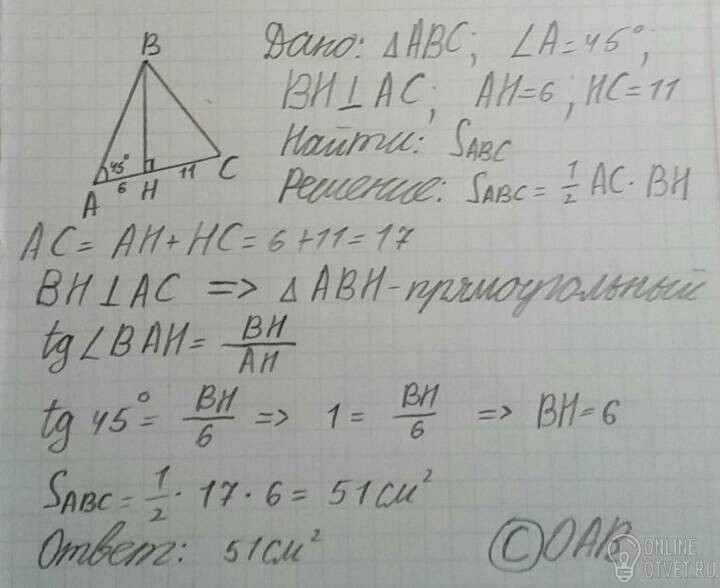 B
Дано: △ABC; ∠A=45°;
BH⊥AC; AH=6; HC=11
Найти: S_ABC
45°
6
11
C
A
H
Решение: S_ABC = 1/2 AC · BH
AC = AH + HC = 6 + 11 = 17
BH⊥AC => △ABH - прямоугольный
tg∠BAH = BH/AH
tg 45° = BH/6 => 1 = BH/6 => BH = 6
S_ABC = 1/2 · 17 · 6 = 51 см²
Ответ: 51 см²
© OAB
ONLINE
OTVET.RU